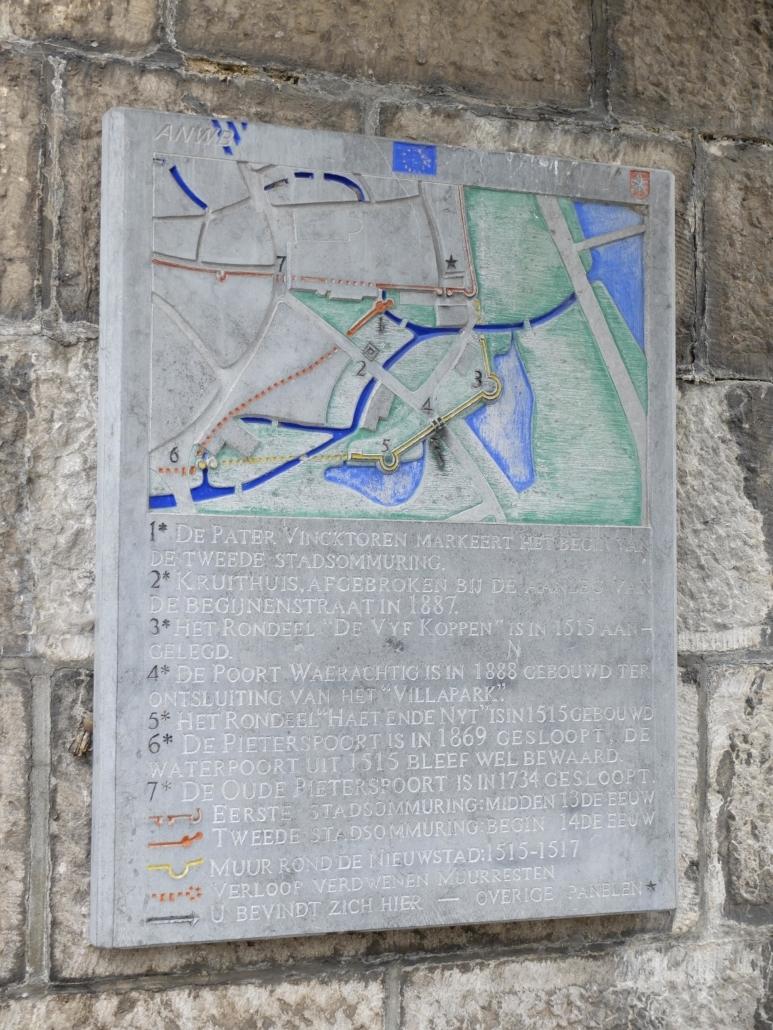 ANWB
7
1
2
3
4
5
6
1* DE PATER VINCKTOREN MARKEERT HET BEGIN VAN
DE TWEEDE STADSOMMURING.
2* KRUITHUIS, AFGEBROKEN BIJ DE AANLEG VAN
DE BEGIJNENSTRAAT IN 1887.
3* HET RONDEEL "DE VYF KOPPEN" IS IN 1515 AAN-
GELEGD.
N
4* DE POORT WAERACHTIG IS IN 1888 GEBOUWD TER
ONTSLUITING VAN HET "VILLAPARK".
5* HET RONDEEL "HAET ENDE NYT" IS IN 1515 GEBOUWD
6* DE PIETERSPOORT IS IN 1869 GESLOOPT, DE
WATERPOORT UIT 1515 BLEEF WEL BEWAARD.
7* DE OUDE PIETERSPOORT IS IN 1734 GESLOOPT.
EERSTE STADSOMMURING: MIDDEN 13DE EEUW
TWEEDE STADSOMMURING: BEGIN 14DE EEUW
MUUR ROND DE NIEUWSTAD: 1515-1517
VERLOOP VERDWENEN MUURRESTEN
U BEVINDT ZICH HIER — OVERIGE PANELEN*